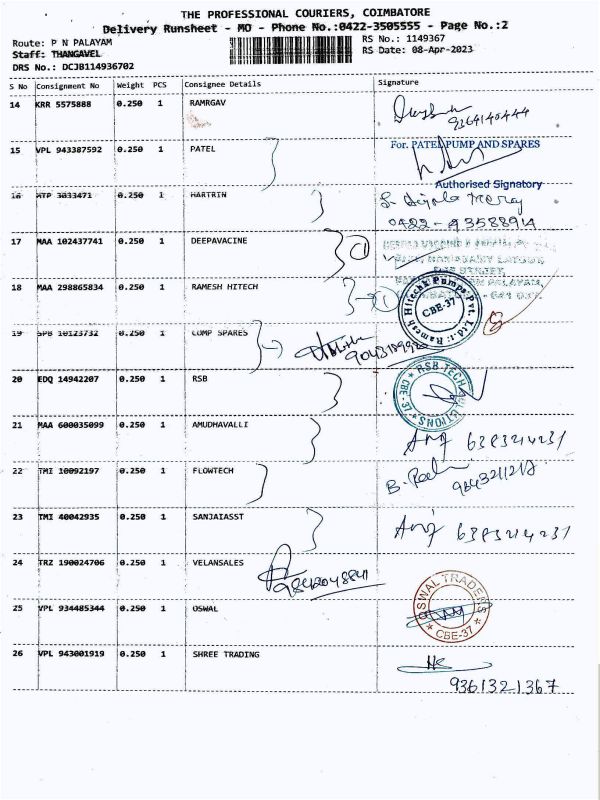 THE PROFESSIONAL COURIERS, COIMBATORE
Delivery Runsheet - MO - Phone No.:0422-3505555 - Page No.:2
Route: P N PALAYAM
RS No.: 1149367
Staff: THANGAVEL
RS Date: 08-Apr-2023
DRS No.: DCJB114936702
S No Consignment No Weight PCS Consignee Details Signature
14 KRR 5575888 0.250 1 RAMRGAV
9364140444
15 VPL 943387592 0.250 1 PATEL
For. PATEL PUMP AND SPARES
Authorised Signatory
16 MTP 3033471 0.250 1 HARTRIN
0422-
17 MAA 102437741 0.250 1 DEEPAVACINE
18 MAA 298865834 0.250 1 RAMESH HITECH
Ramesh Hitech Pumps Pvt. Ltd.
CBE-37
19 SPB 10123732 0.250 1 COMP SPARES
20 EDQ 14942207 0.250 1 RSB
RSB-TECH
CBE-37
21 MAA 600035099 0.250 1 AMUDHAVALLI
22 TMI 10092197 0.250 1 FLOWTECH
23 TMI 40042935 0.250 1 SANJAIASST
24 TRZ 190024706 0.250 1 VELANSALES
25 VPL 934485344 0.250 1 OSWAL
OSWAL TRADERS
CBE-37
26 VPL 943001919 0.250 1 SHREE TRADING
9361321367